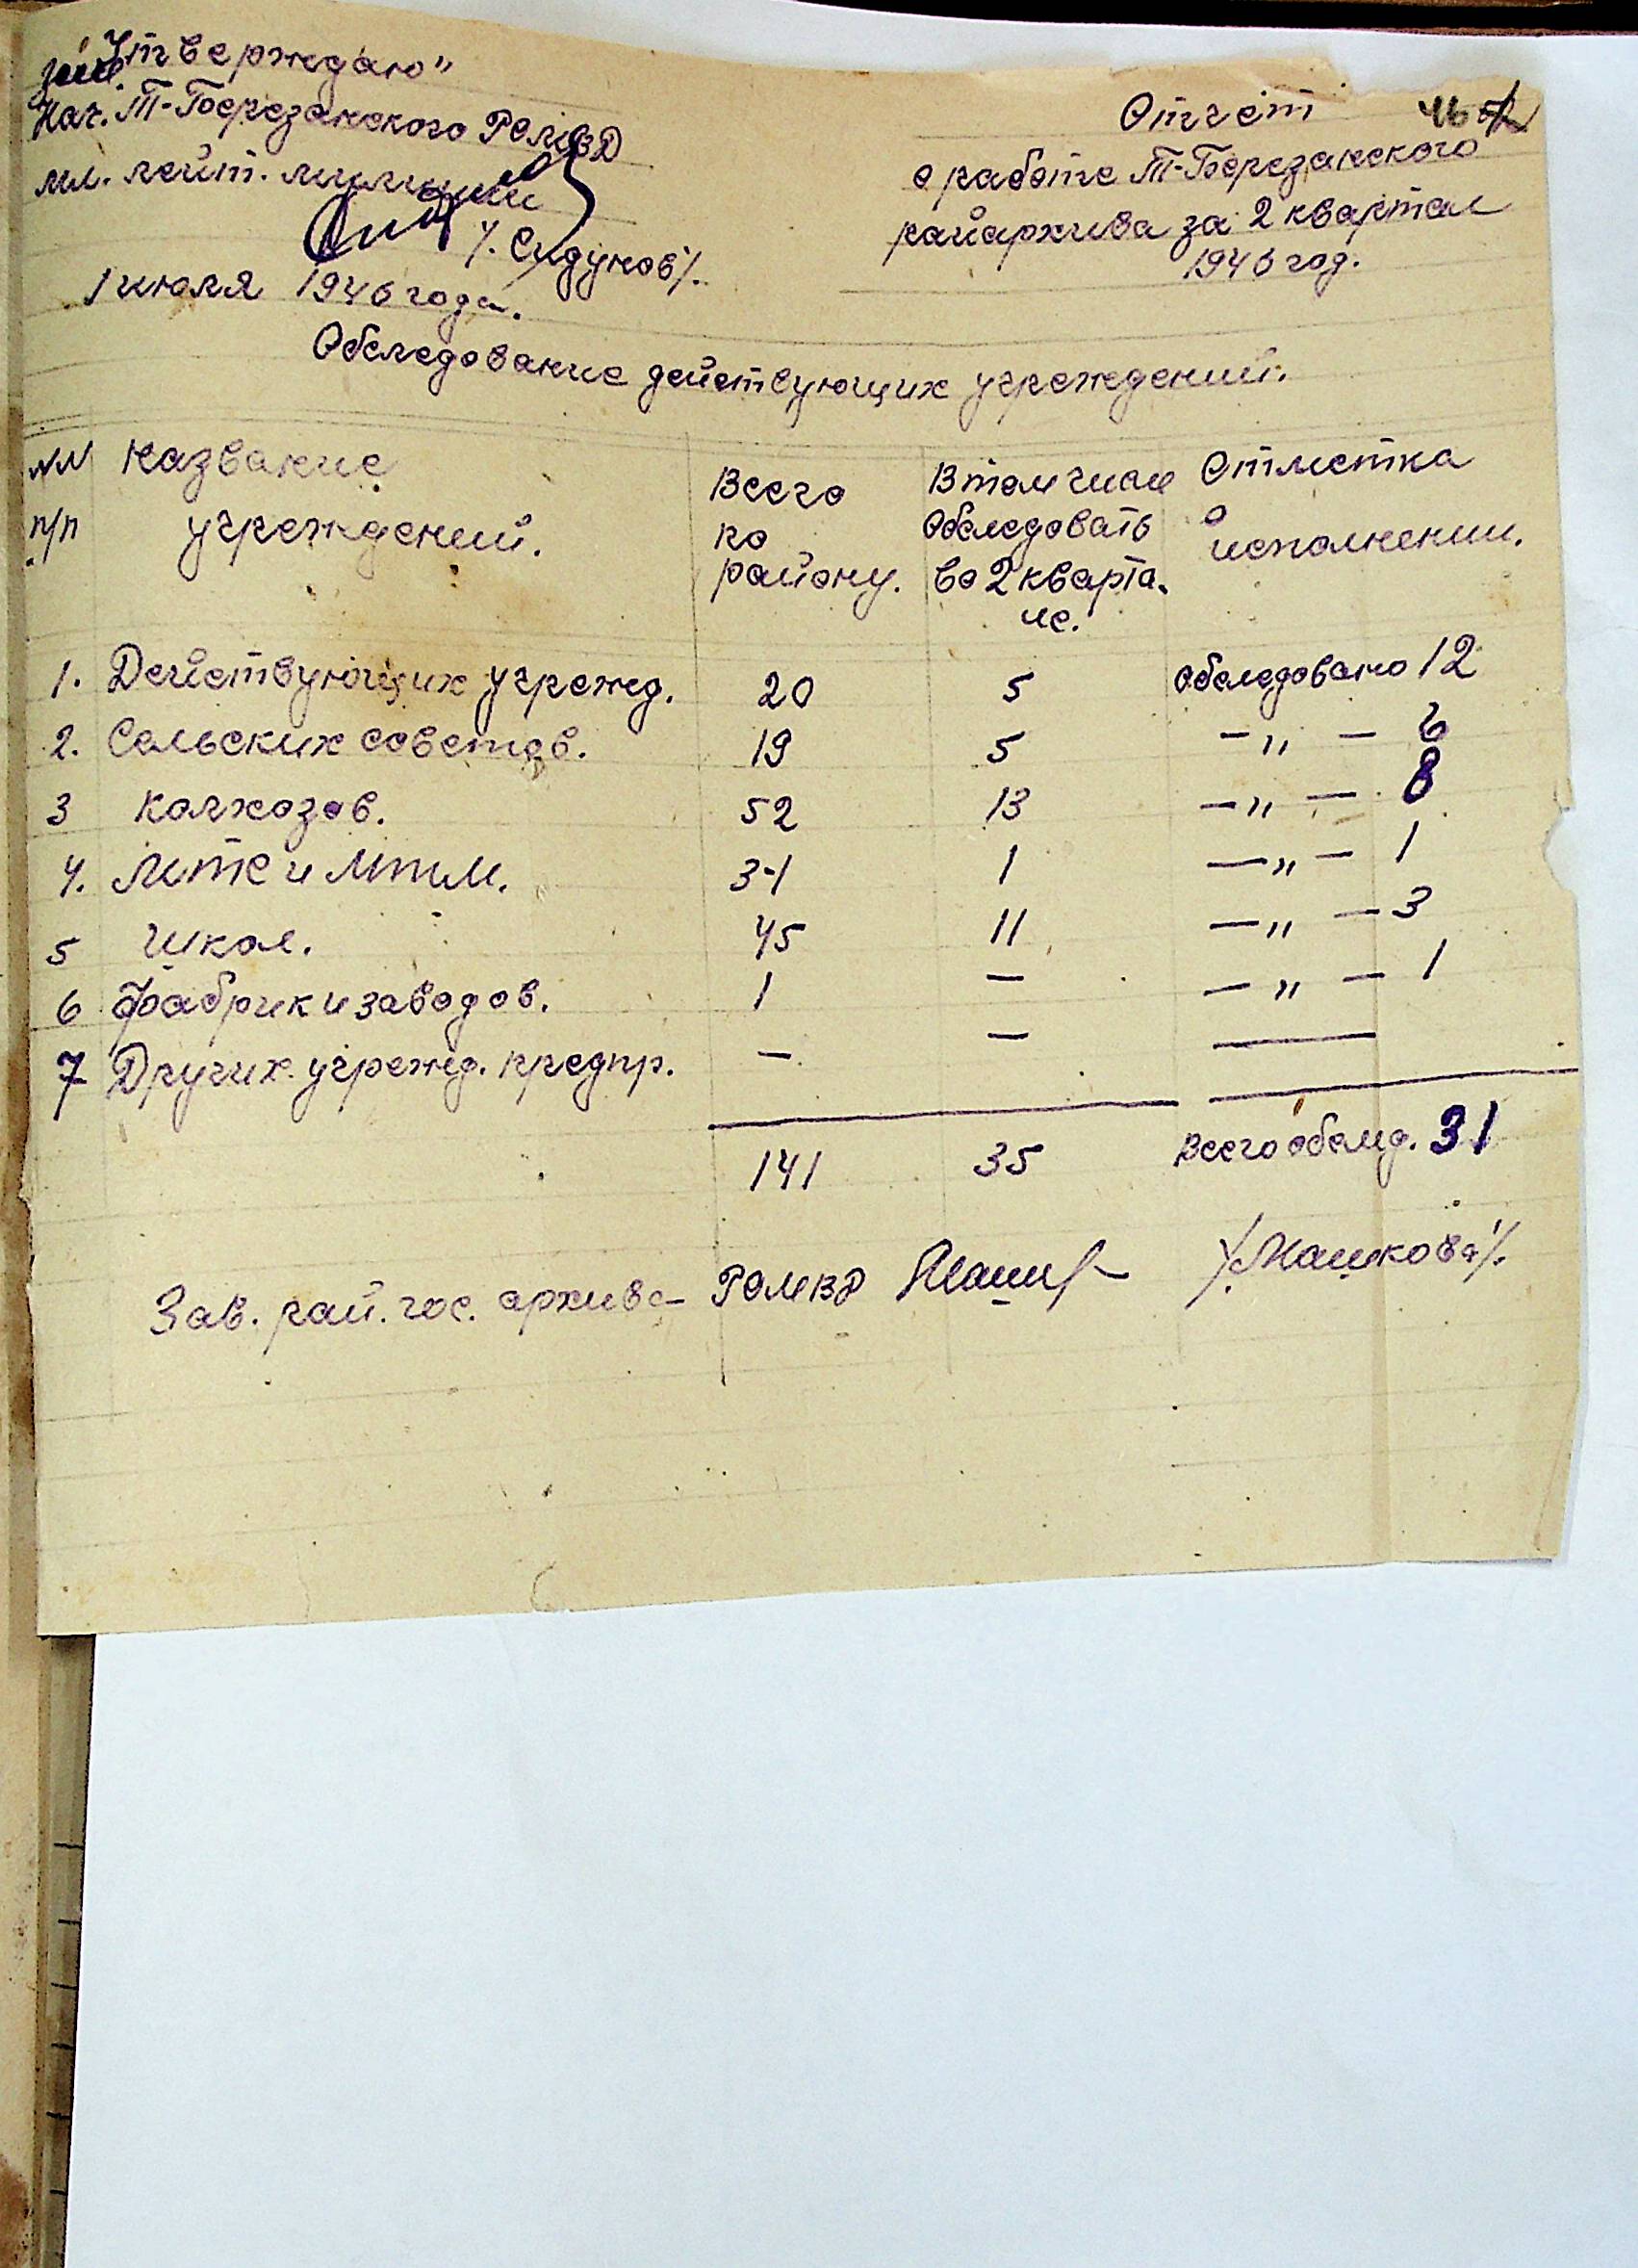 "Утверждаю"
зам.
Нач. Т-Березанского РОМВД
мл. лейт. милиции
/. Сидунов/.
1 июля 1946 года.
Отчёт 46
о работе Т-Березанского
райархива за 2 квартал
1946 год.
Обследование действующих учреждений.
NN п/п
Название учреждений.
Всего по району.
В том числе обследовать во 2 квартале.
Отметка о исполнении.
1. Действующих учрежд. 20 5 обследовано 12
2. Сельских советов. 19 5 —„— 6
3 Колхозов. 52 13 —„— 8
4. МТС и МТМ. 3-1 1 —„— 1
5 Школ. 45 11 —„— 3
6 Фабрик и заводов. 1 — —„— 1
7 Других учрежд. предпр. — — —
141 35 Всего обслед. 31
Зав. рай. гос. архива РОМВД /.Машкова/.